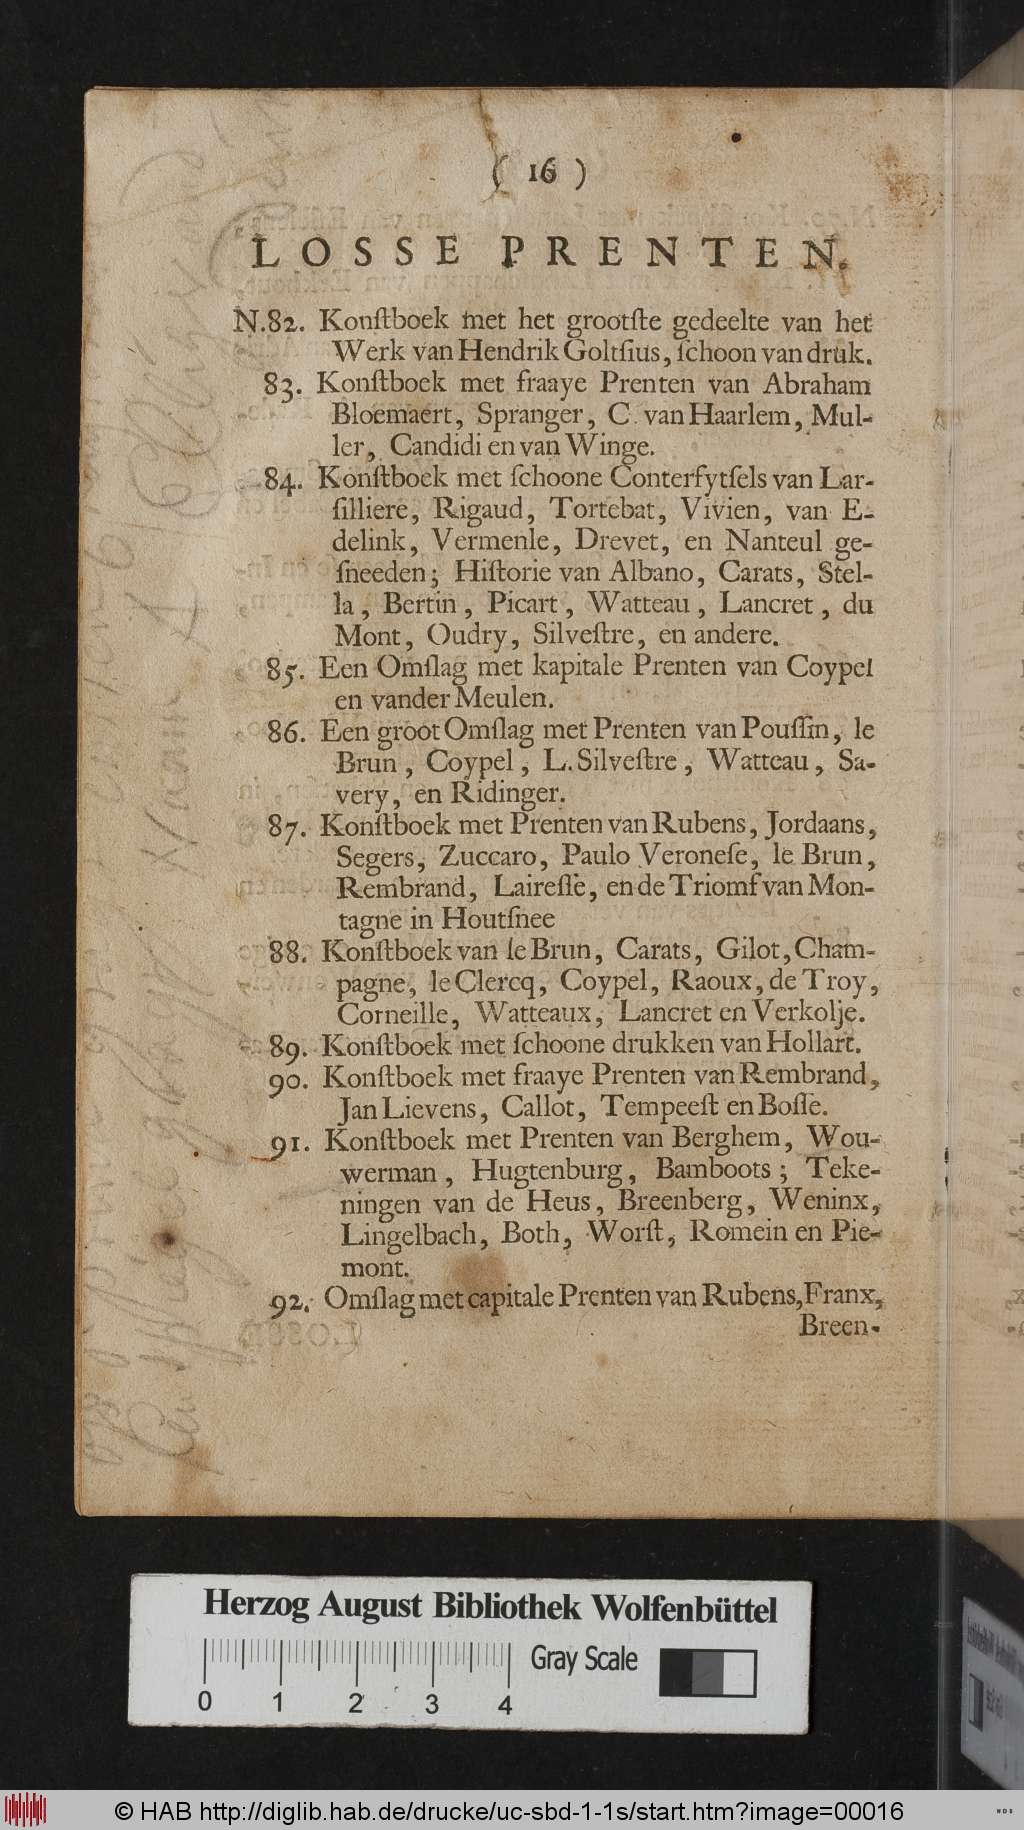 ( 16 )
LOSSE PRENTEN.
N.82. Konſtboek met het grootſte gedeelte van het
Werk van Hendrik Goltſius, ſchoon van druk.
83. Konſtboek met fraaye Prenten van Abraham
Bloemaert, Spranger, C. van Haarlem, Mul-
ler, Candidi en van Winge.
84. Konſtboek met ſchoone Conterfytſels van Lar-
ſilliere, Rigaud, Tortebat, Vivien, van E-
delink, Vermenle, Drevet, en Nanteul ge-
ſneeden; Hiſtorie van Albano, Carats, Stel-
la, Bertin, Picart, Watteau, Lancret, du
Mont, Oudry, Silveſtre, en andere.
85. Een Omſlag met kapitale Prenten van Coypel
en vander Meulen.
86. Een groot Omſlag met Prenten van Pouſſin, le
Brun, Coypel, L. Silveſtre, Watteau, Sa-
very, en Ridinger.
87. Konſtboek met Prenten van Rubens, Jordaans,
Segers, Zuccaro, Paulo Veroneſe, le Brun,
Rembrand, Laireſſe, en de Triomf van Mon-
tagne in Houtſnee
88. Konſtboek van le Brun, Carats, Gilot, Cham-
pagne, le Clercq, Coypel, Raoux, de Troy,
Corneille, Watteaux, Lancret en Verkolje.
89. Konſtboek met ſchoone drukken van Hollart.
90. Konſtboek met fraaye Prenten van Rembrand,
Jan Lievens, Callot, Tempeeſt en Boſſe.
91. Konſtboek met Prenten van Berghem, Wou-
werman, Hugtenburg, Bamboots; Teke-
ningen van de Heus, Breenberg, Weninx,
Lingelbach, Both, Worſt, Romein en Pie-
mont.
92. Omſlag met capitale Prenten van Rubens, Franx,
Breen-
Herzog August Bibliothek Wolfenbüttel
Gray Scale
0 1 2 3 4
© HAB http://diglib.hab.de/drucke/uc-sbd-1-1s/start.htm?image=00016